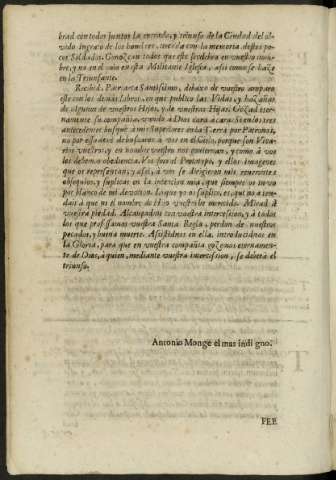 brad con todos juntos la entrada, y triunfo de la Ciudad del olvido
vido ingrato de los hombres, coreada con la memoria destos po-
cos Soldados. Conozcan todos que este se celebra en vuestro nom-
bre, y no en el mio en esta Militante Iglesia, assi como se haze
en la Triunfante.
Recibid, Patriarca Santissimo, debaxo de vuestro amparo
este con los demàs libros, en que publico las Vidas, y hazañas
de algunos de vuestros Hijos, y de vuestras Hijas. Gozad eter-
namente su compañia, viendo à Dios cara à cara. En los tres
antecedentes busquè à mis Superiores en la Tierra por Patronos,
no por esso dexè de buscaros à vos en el Cielo, porque son Vica-
rios vuestros, y en nombre vuestro nos goviernan, y como à vos
los debemos obediencia. Vos sois el Prototypo, y ellos imagenes
que os representan; y assi, à vos se dirigieron mis reverentes
obsequios, y suplica en la interior mia, que siempre os tuvo
por blanco de mi devocion. Lo que yo os suplico, es, que no aten-
dais à que ni el nombre de Hijo vuestro he merecido. Mirad à
vuestra piedad. Alcançadme con vuestra intercession, y à todos
los que professamos vuestra Santa Regla, perdon de nuestros
pecados, y buena muerte. Assistidnos en ella, introducidnos en
la Gloria, para que en vuestra compañia gozemos eternamen-
te de Dios, à quien, mediante vuestra intercession, se deberà el
triunfo.
Antonio Monge el mas indigno.
FEE